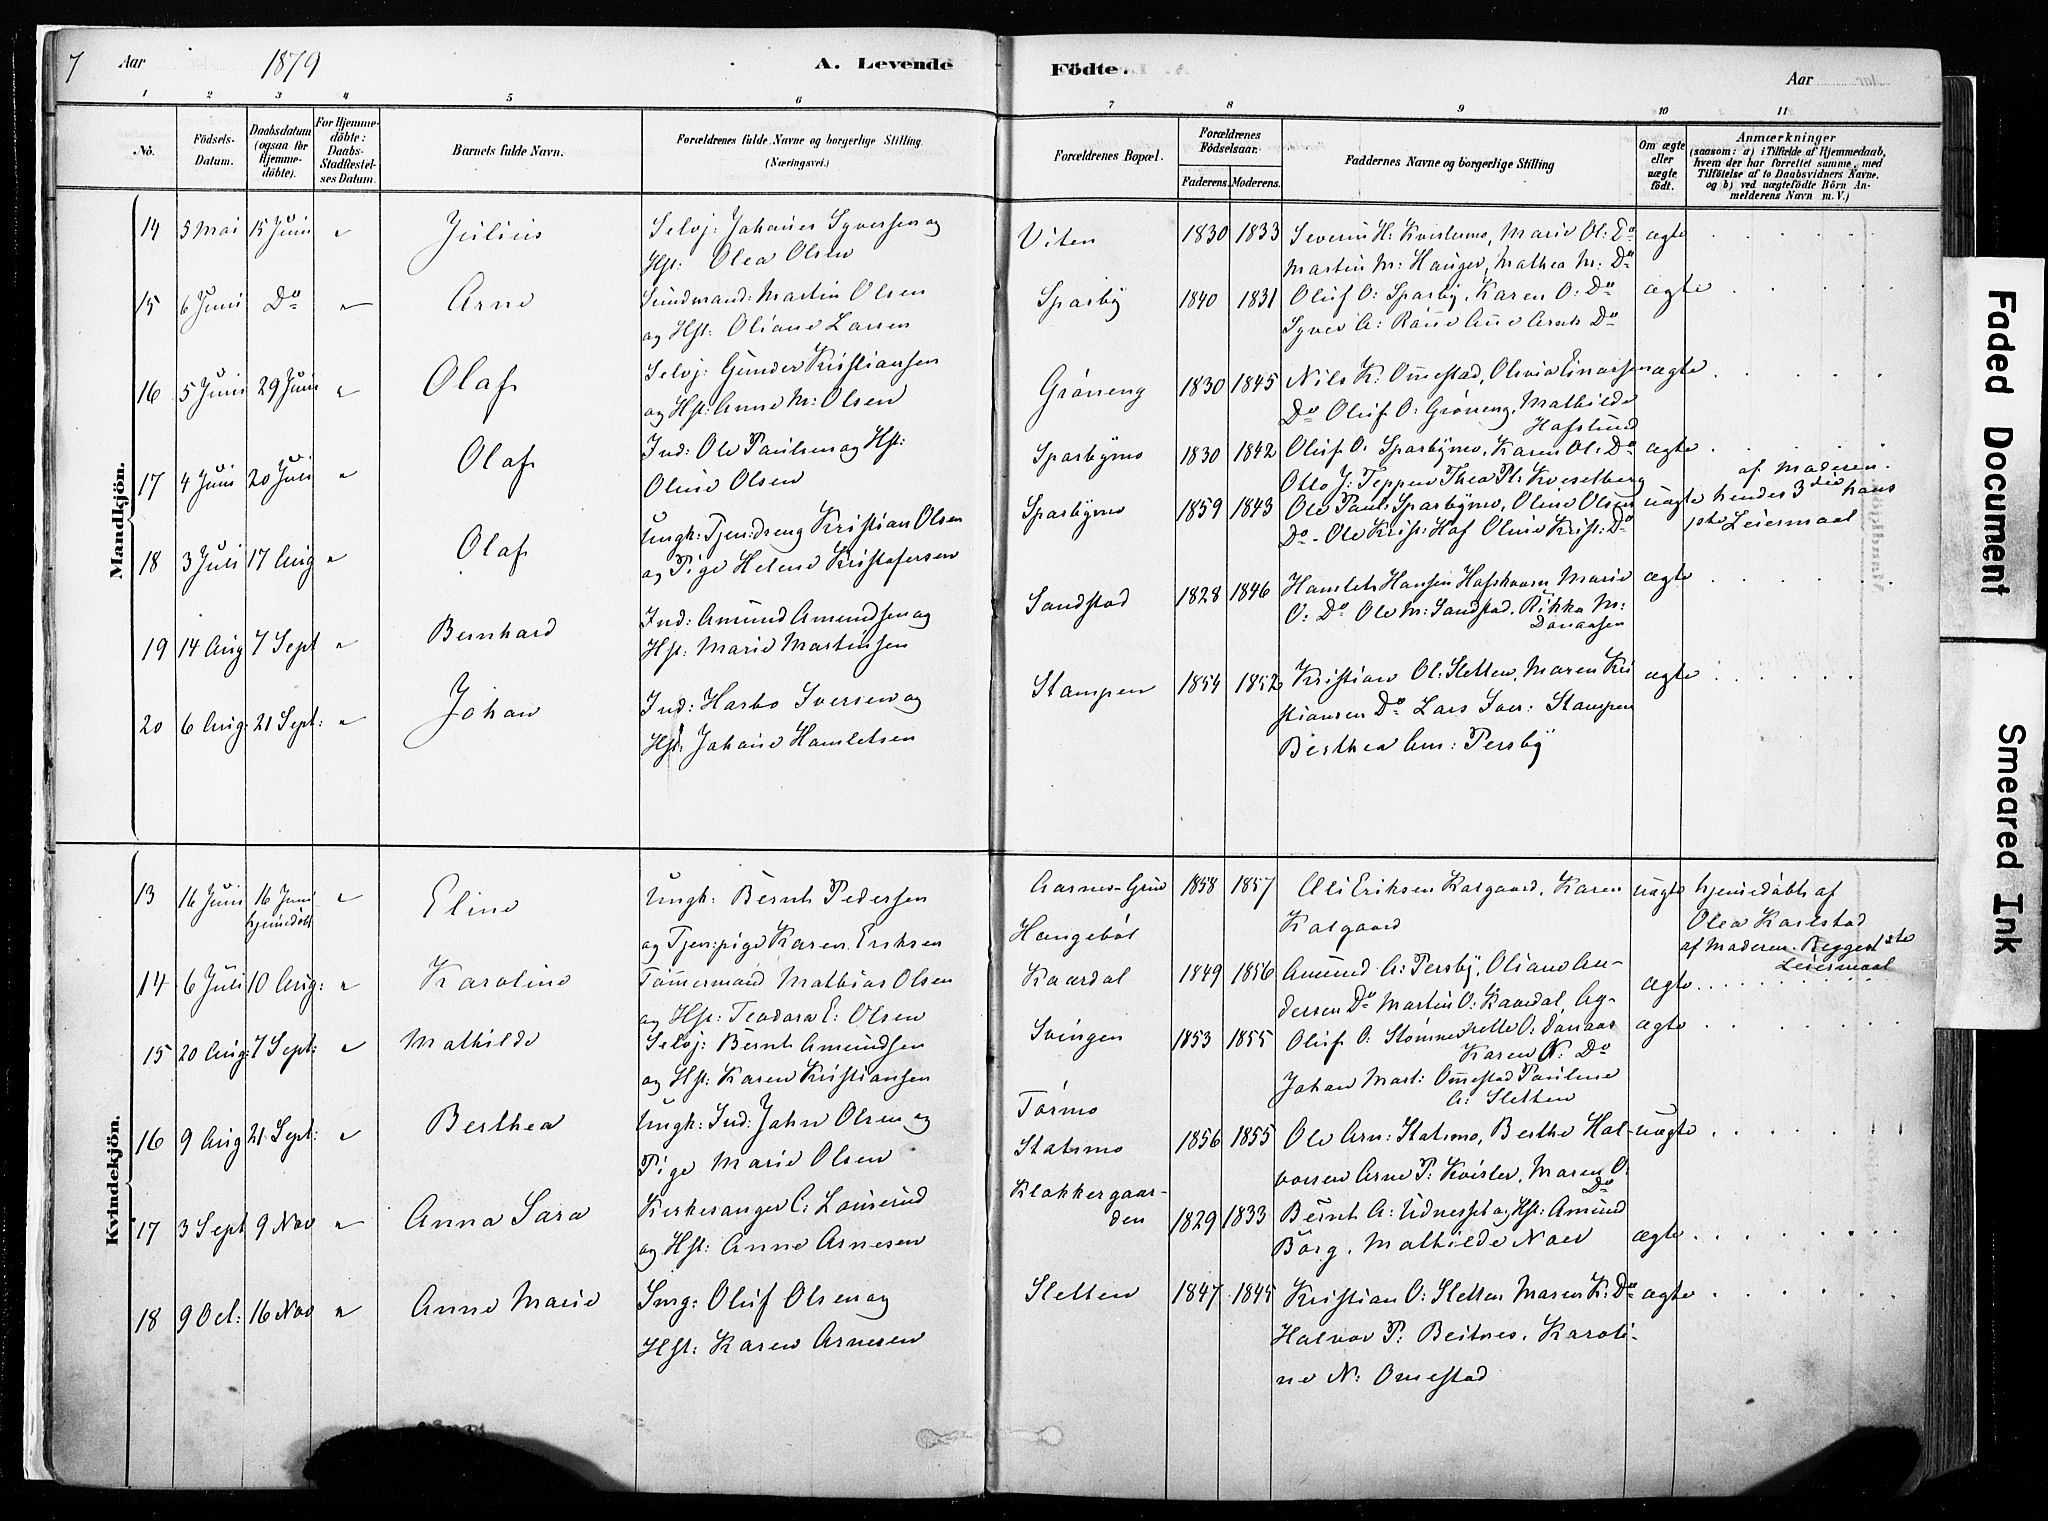 7 Aar 1879 A. Levende Födte. Aar
1 2 3 4 5 6 7 8 9 10 11
No.
Födsels-Datum.
Daabsdatum (ogsaa for Hjemmedöbte).
For Hjemmedöbte: Daabs-Stadfæstelses Datum.
Barnets fulde Navn.
Forældrenes fulde Navne og borgerlige Stilling (Næringsvei.)
Forældrenes Bopæl.
Forældrenes Födselsaar.
Faderens. Moderens.
Faddernes Navne og borgerlige Stilling
Om ægte eller uægte födt.
Anmærkninger
(saasom: a) i Tilfælde af Hjemmedaab, hvem der har forrettet samme, med Tilföielse af to Daabsvidners Navne, og b) ved uægtefödte Börn Anmelderens Navn m. V.)
Mandkjön.
14 5 Mai 15 Juni " Julius Selvj: Johanes Syversen og Viten 1830 1833 Severin H: Kvislermo, Marie Ol: Do ægte
Hst: Olea Olsen Martin M: Hauger, Mathea M: Do
15 6 Juni Do " Arne Sundmand: Martin Olsen Sparby 1840 1831 Oluf O: Sparby, Karen O: Do ægte
og Hst: Oliane Larsen Syver A: Do
16 5 Juni 29 Juni " Olaf Selvj: Gunder Kristiansen Gröneng 1830 1845 Nils K: Omestad, Olivia Einarsen ægte
og Hst: Anne M: Olsen Do Oluf O: Gröneng, Mathilde
Hafslund
17 4 Juni 20 Juli " Olaf Ind: Ole Paulsen og Hst: Sparbymo 1830 1842 Oluf O: Sparbymo, Karen Ol: Do ægte
Oline Olsen Otto J: Teppen Thea Pl: Kveselberg
18 3 Juli 17 Aug " Olaf Ungk: Tjen: dreng Kristian Olsen Sparbymo 1859 1843 Ole Paul: Sparbymo, Oline Olsen uægte af Moderen.
hendes 3die hans
og Pige Helene Kristofersen Do - Ole Krist: Haf Oline Krist: Do 1ste Leiermaal
19 14 Aug 7 Sept " Bernhard Ind: Amund Amundsen og Sandstad 1828 1846 Hamlet Hansen Marie ægte
Hst: Marie Martinsen O: Do Ole M: Sandstad, Rikka M:
Danaasen
20 6 Aug: 21 Sept: " Johan Ind: Harbo Iversen og Stampen 1854 1852 Kristian Ol: Sletten, Maren Kri ægte
Hst: Johane Hamletsen stiansen Do Lars Iver: Stampen
Berthea Am: Persby
Kvindekjön.
13 16 Juni 16 Juni hjemedöbt " Eline Ungk: Bernt Pedersen Aarnes-Grin 1858 1857 Ole Eriksen Kalgaard, Karen uægte hjemedöbt af
og Tjen: pige Karen Eriksen Haugeböl Kalgaard Olea Karlstad
af Moderen. Begges 1ste
Leiermaal
14 6 Juli 10 Aug: " Karoline Tömermand Mathias Olsen Kaardal 1849 1856 Amund A: Persby, Oliane An- ægte
og Hst: Teodora E: Olsen dersen Do Martin O: Kaardal, Ag-
nette O: Danaas
15 20 Aug: 7 Sept: " Mathilde Selvj: Bernt Amundsen Svingen 1853 1855 Oluf O: Stömne Karen N: Do ægte
og Hst: Karen Kristiansen Johan Mart: Omestad Pauline
A: Sletten
16 9 Aug 21 Sept: " Berthea Ungk: Ind: John Olsen og Tormo 1856 1855 Ole Arn: Statsmo, Berthe Hal- uægte
Pige Marie Olsen Statsmo vorsen Arne P: Kvisler, Maren O: Do
17 3 Sept 9 Nov " Anna Sara Kirkesanger C: Lourud Klokkergaar-den 1829 1833 Bernt A: Udnesset og Hst: Amund ægte
og Hst: Anne Arnesen Borg, Mathilde Noer
18 9 Oct: 16 Nov " Anne Marie Smg: Oluf Olsen og Sletten 1847 1845 Kristian O: Sletten Maren K: Do ægte
Hst: Karen Arnesen Halvor P: Beitnes, Karoli-
ne N: Omestad
Faded Document
Smeared Ink